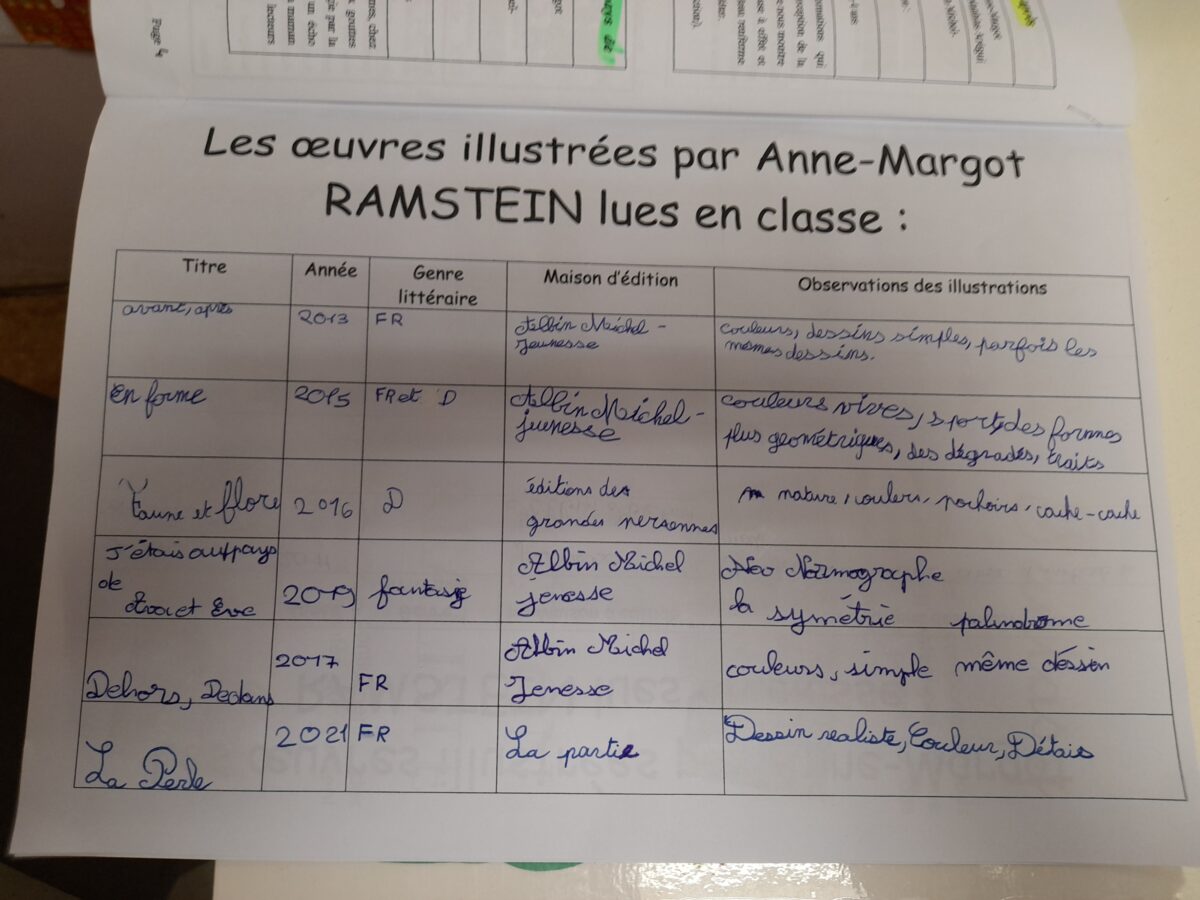 Page 4
Les œuvres illustrées par Anne-Margot
RAMSTEIN lues en classe :
Titre Année Genre littéraire Maison d'édition Observations des illustrations
avant, après 2013 FR Albin Michel - Jeunesse couleurs, dessins simples, parfois les mêmes dessins.
En forme 2015 FR et D Albin Michel - jeunesse couleurs vives, sports, des formes plus géometriques, des dégradés, traits
Faune et flore 2016 D éditions des grandes personnes nature, coulers, pochoirs, cache-cache
J'étais au pays de et Eve 2019 fantasie Albin Michel jenesse Néo Normographe la symétrie palindrome
Dehors, Dedans 2017 FR Albin Michel Jenesse couleurs, simple même dessin
La Perle 2021 FR La partie Dessin realiste, Couleur, Détais